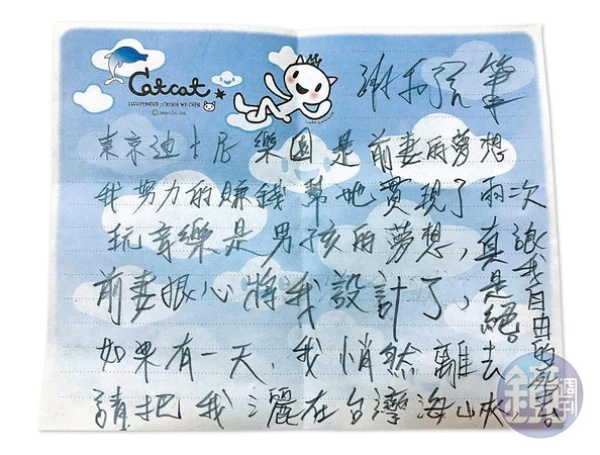 Catcat
謝和弦筆
東京迪士尼樂園是前妻的夢想
我努力的賺錢幫她實現了兩次
玩音樂是男孩的夢想,真
前妻狠心將我設計了,是絕。
如果有一天,我悄然離去
請把我灑在台灣海峽
讓我自由的死去。
鏡週刊